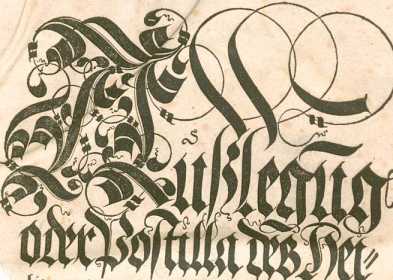 Außlegung
oder Postilla des Hei⸗